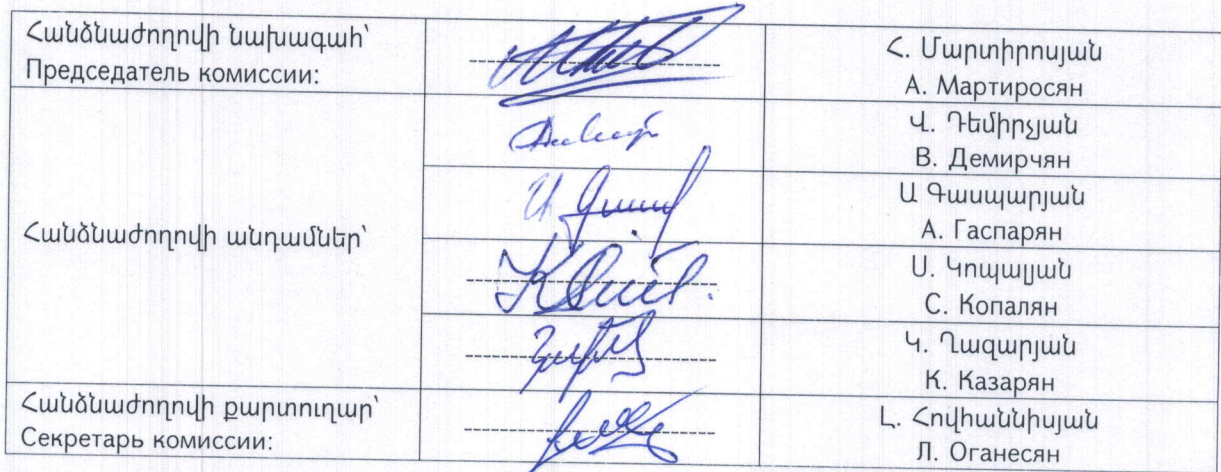 Հանձնաժողովի նախագահ՝
Председатель комиссии:
Հ. Մարտիրոսյան
А. Мартиросян
Վ. Դեմիրչյան
В. Демирчян
Հանձնաժողովի անդամներ՝
Ա Գասպարյան
А. Гаспарян
Ս. Կոպալյան
С. Копалян
Կ. Ղազարյան
К. Казарян
Հանձնաժողովի քարտուղար՝
Секретарь комиссии:
Լ. Հովհաննիսյան
Л. Оганесян